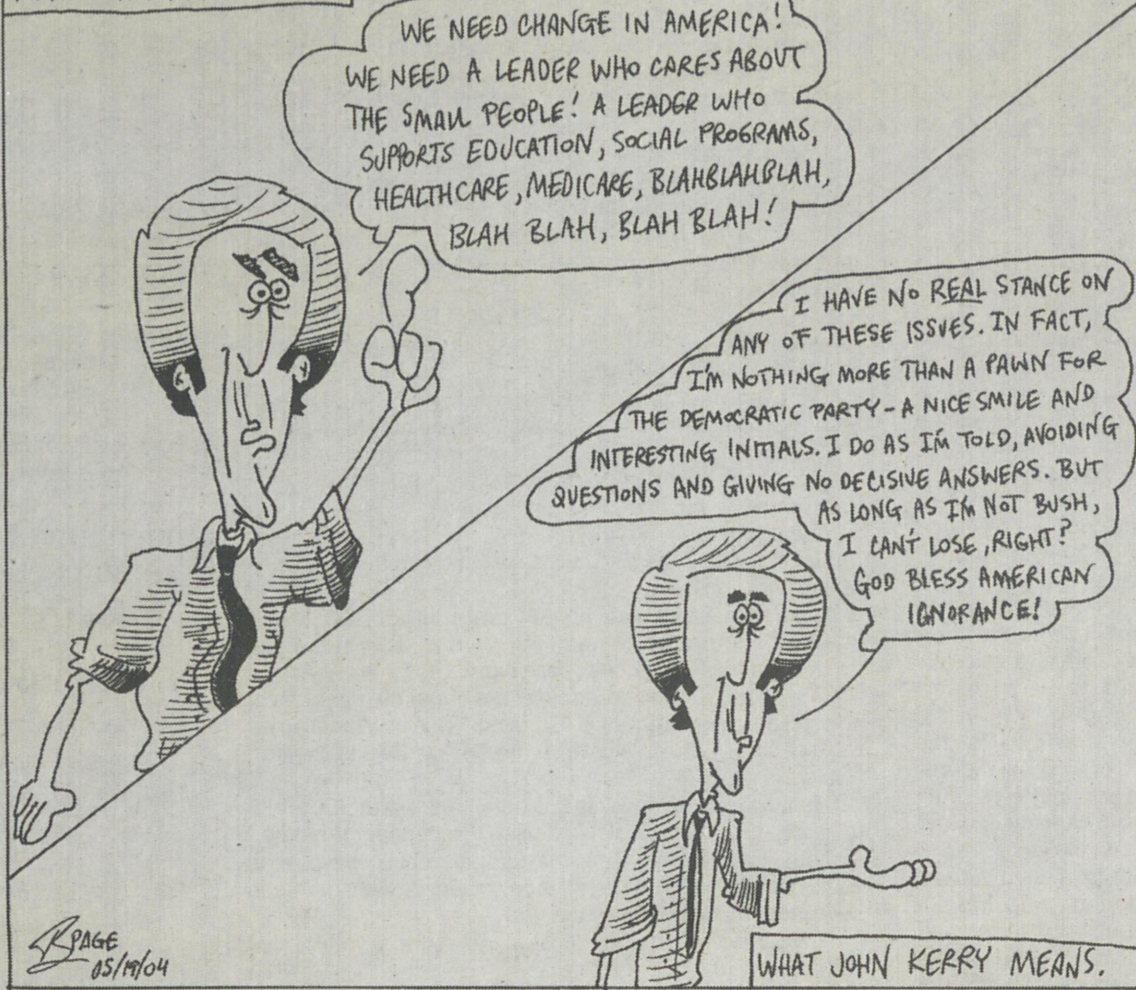 WE NEED CHANGE IN AMERICA!
WE NEED A LEADER WHO CARES ABOUT
THE SMALL PEOPLE! A LEADER WHO
SUPPORTS EDUCATION, SOCIAL PROGRAMS,
HEALTHCARE, MEDICARE, BLAHBLAHBLAH,
BLAH BLAH, BLAH BLAH!
I HAVE NO REAL STANCE ON
ANY OF THESE ISSUES. IN FACT,
I'M NOTHING MORE THAN A PAWN FOR
THE DEMOCRATIC PARTY - A NICE SMILE AND
INTERESTING INITIALS. I DO AS I'M TOLD, AVOIDING
QUESTIONS AND GIVING NO DECISIVE ANSWERS. BUT
AS LONG AS I'M NOT BUSH,
I CAN'T LOSE, RIGHT?
GOD BLESS AMERICAN
IGNORANCE!
PAGE
05/19/04
WHAT JOHN KERRY MEANS.